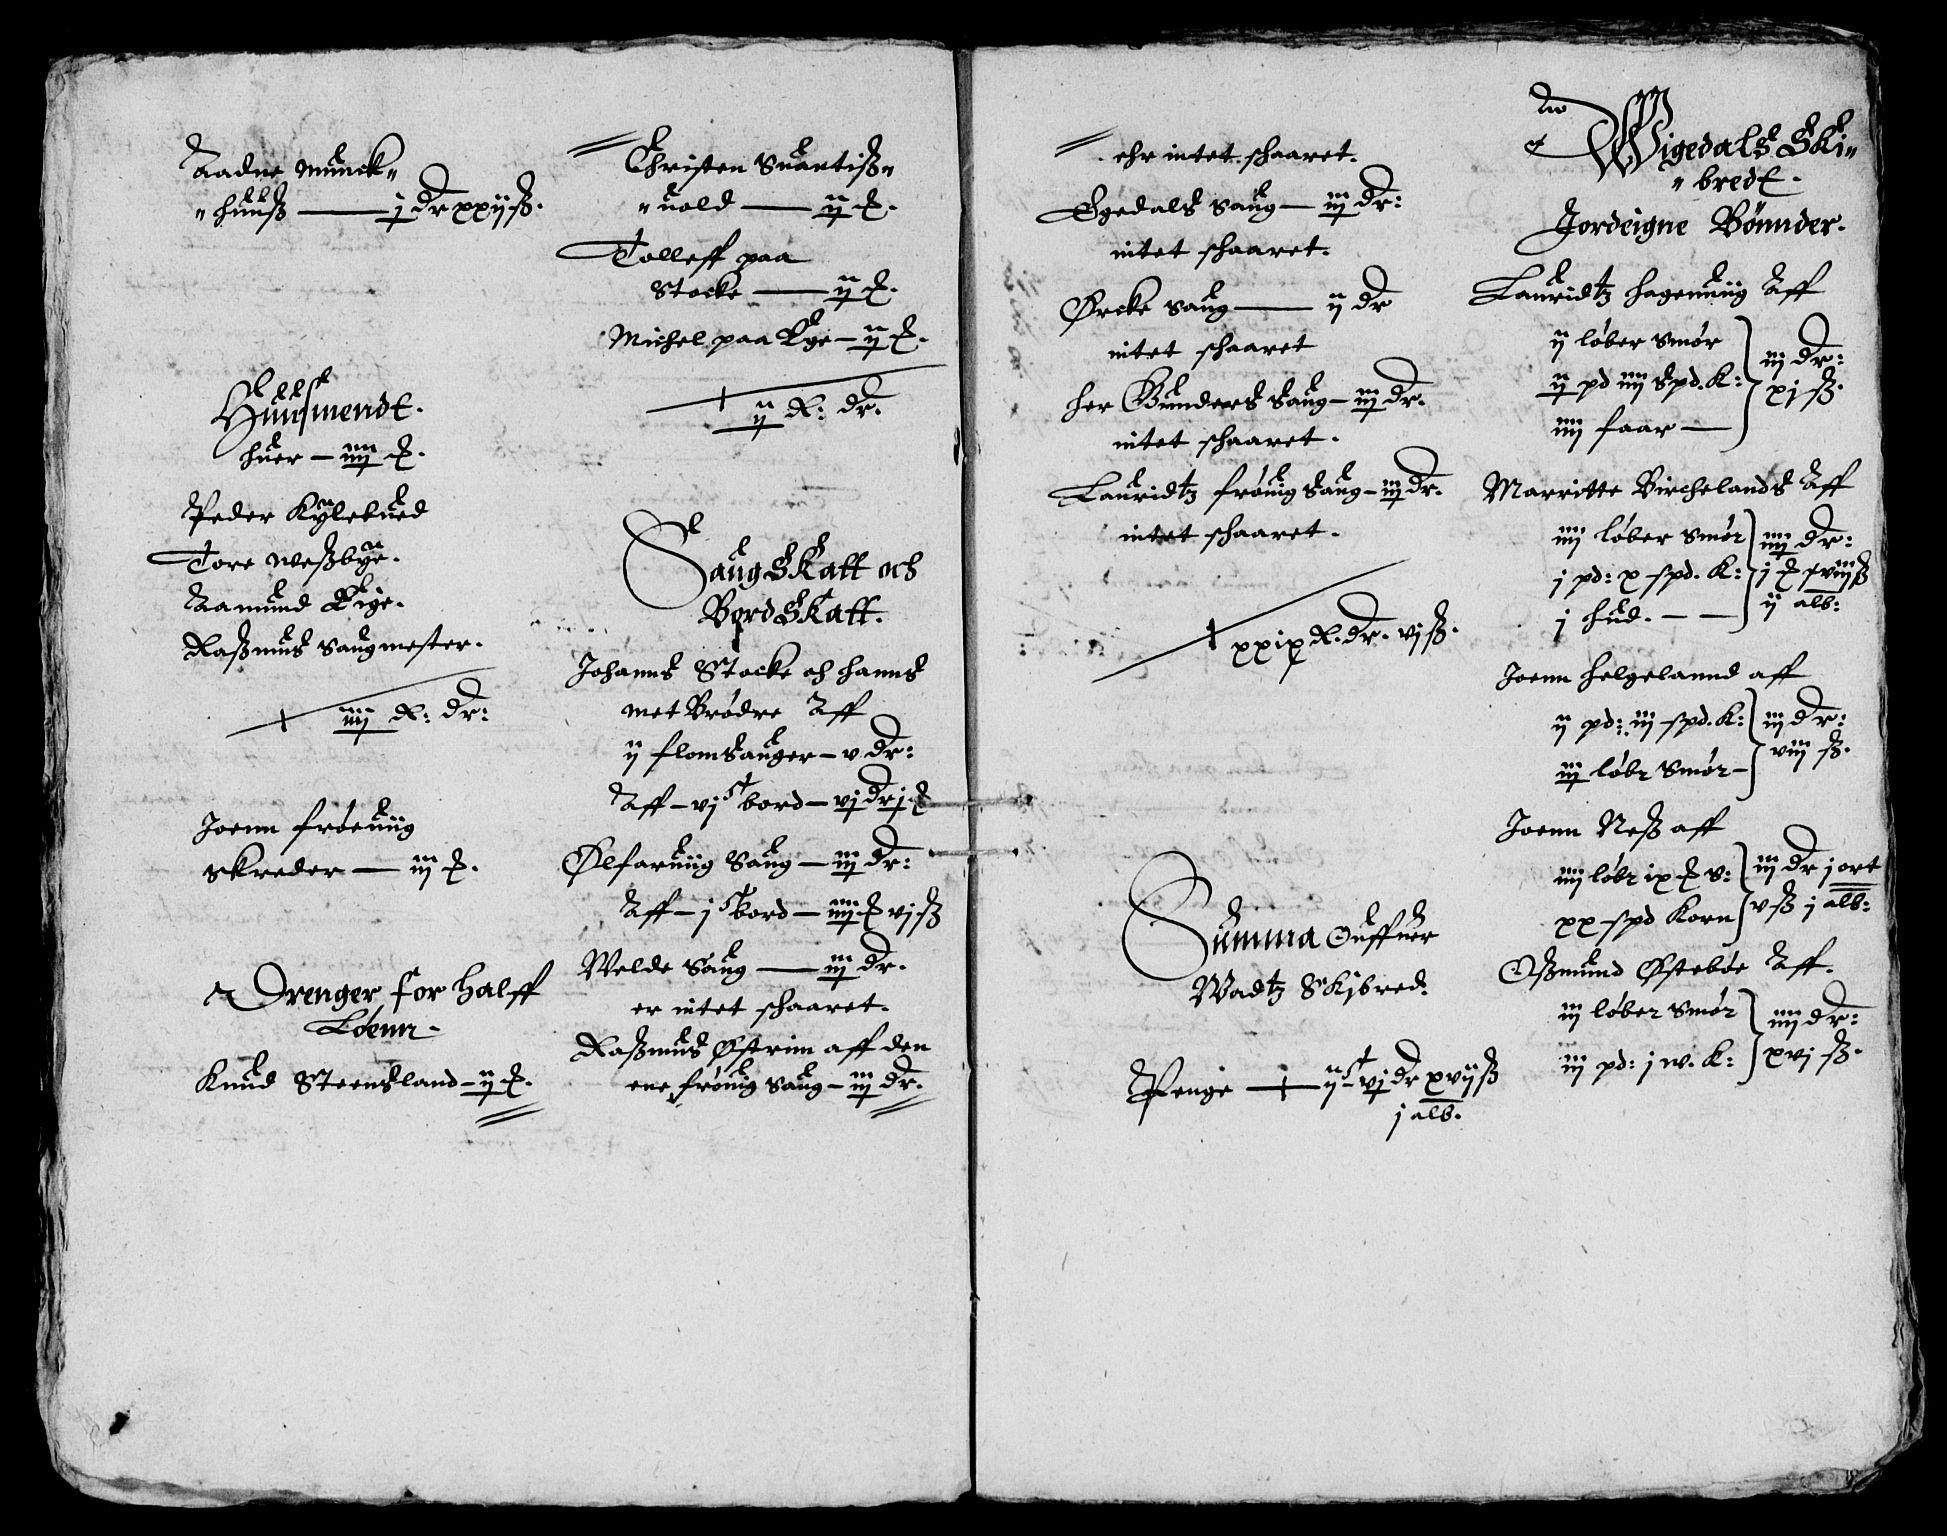 Aadne Munck-
-huuß — j dr xxijß.
Huusmendt.
huer — iiij ↄ.
Peder Kyleuued
Tore Weßbye.
Aamund Eige.
Raßmus Saugmester.
iiij R: dr:
Joenn frøeuiig
Skreder — iij ↄ.
Drenger for Halff
Løenn.
Knud Steensland — ij ↄ.
Christen Suartiß-
-uold — ij ↄ.
Tolleff paa
Stocke — ij ↄ.
Michel paa Ege — ij ↄ.
ij R: dr.
SaugSkatt och
BordSkatt.
Johanns Stocke och hanns
met Brødre Aff
ij flomSauger — v dr:
Aff — vj c bord — vj dr j ↄ
Ølfaruiig Saug — iij dr:
Aff — j c bord — iiij ↄ vj ß
Welde Saug — iij dr.
er intet schaaret.
Raßmus Østrim aff den
ene frøuig Saug — iij dr.
ehr intet schaaret.
Egedals Saug — iij dr:
intet schaaret.
Ørcke Saug — ij dr
intet schaaret
her Gunders Saug — iij dr.
intet schaaret.
Lauridtz frøuig Saug — iij dr.
intet schaaret.
xxix R. dr. vj ß.
Summa Ouffuer
Wadtz Skibred:
Penge — ij c vj dr xvij ß
j alb.
Wigedals Ski-
-bredt.
Jordeigne Bønnder.
Lauridtz hagenuiig Aff
ij løber Smør
ij pd iiij Spd. K:
iiij faar —
iij dr:
xj ß.
Marritte Birchelands Aff
iiij løber Smør
j pd: x spd. K:
j hud. —
iiij dr:
j ↄ xviij ß
ij alb:
Joenn helgelannd aff
ij pd: iij spd. K:
iij løbr Smør —
iij dr:
viij ß.
Joenn Neß aff
iiij løbr ix ↄ s:
xx spd Korn
iij dr j ort
v ß j alb:
Oßmund Østebøe Aff.
iij løber Smør
iij pd: j w. K:
iiij dr:
xvj ß.